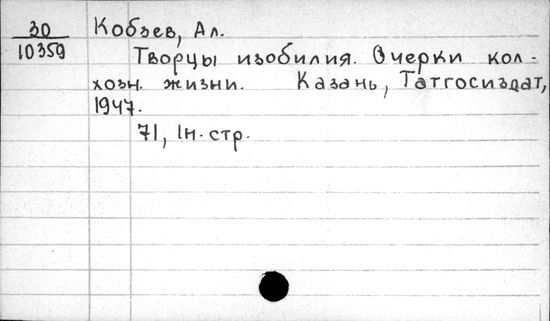 30 Кобзев, Ал.
10359 Творцы изобилия. Очерки кол-
хозн. жизни. Казань, Татгосиздат,
1947.
71, 1н. стр.